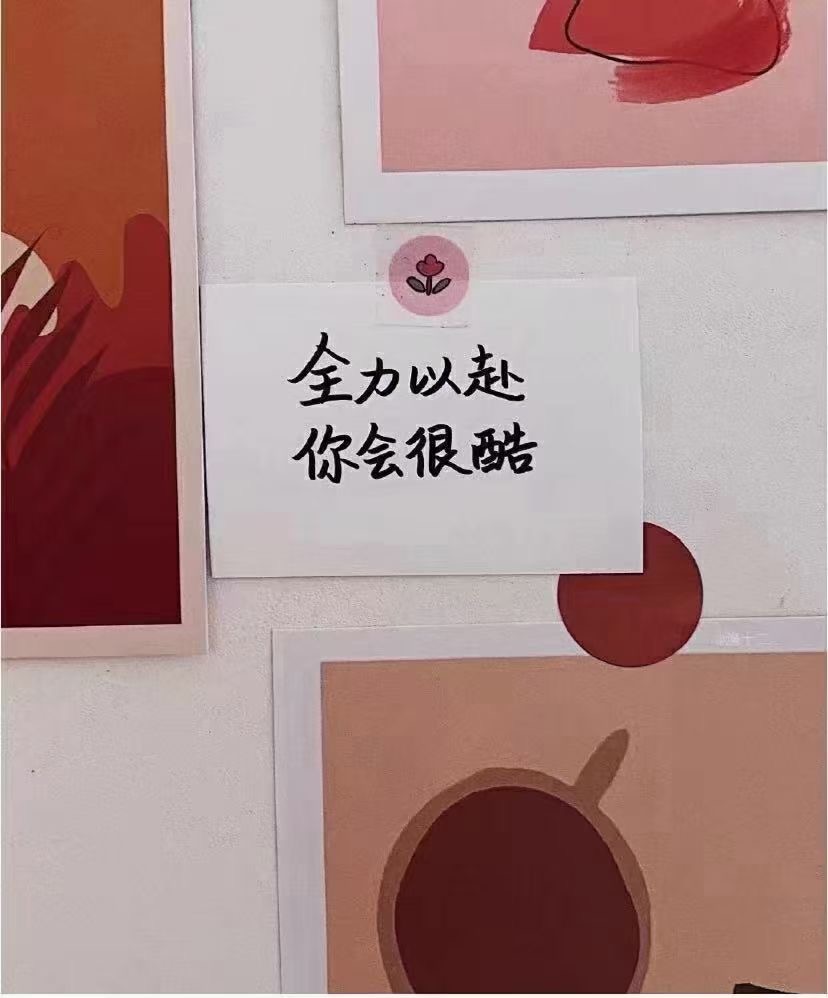 全力以赴
你会很酷